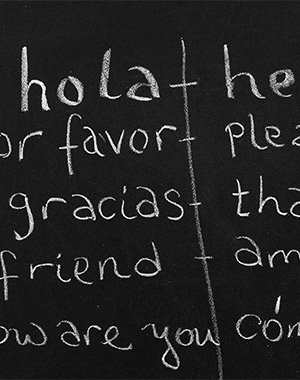 hola - he
or favor - plea
gracias - tha
friend - am
ow are you cóm